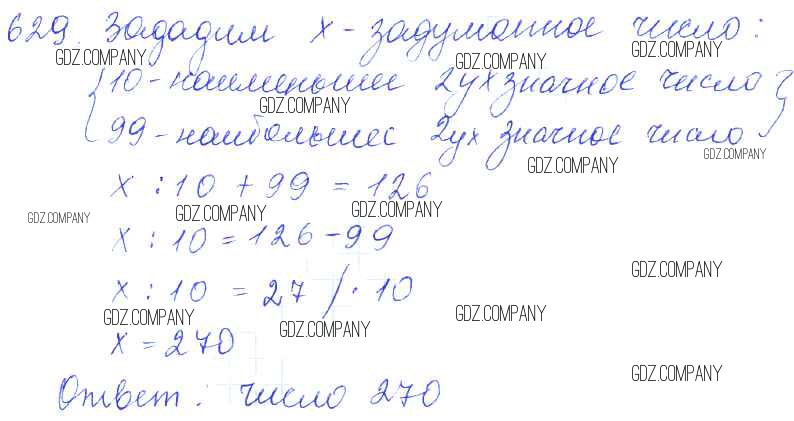 629. Зададим x - задуманное число:
GDZ.COMPANY GDZ.COMPANY GDZ.COMPANY
{10 - наименьшее 2ух значное число}
GDZ.COMPANY
{99 - наибольшее 2ух значное число}
GDZ.COMPANY GDZ.COMPANY
x : 10 + 99 = 126
GDZ.COMPANY GDZ.COMPANY GDZ.COMPANY
x : 10 = 126 - 99
GDZ.COMPANY
x : 10 = 27 / · 10
GDZ.COMPANY GDZ.COMPANY GDZ.COMPANY
x = 270
GDZ.COMPANY
Ответ: число 270